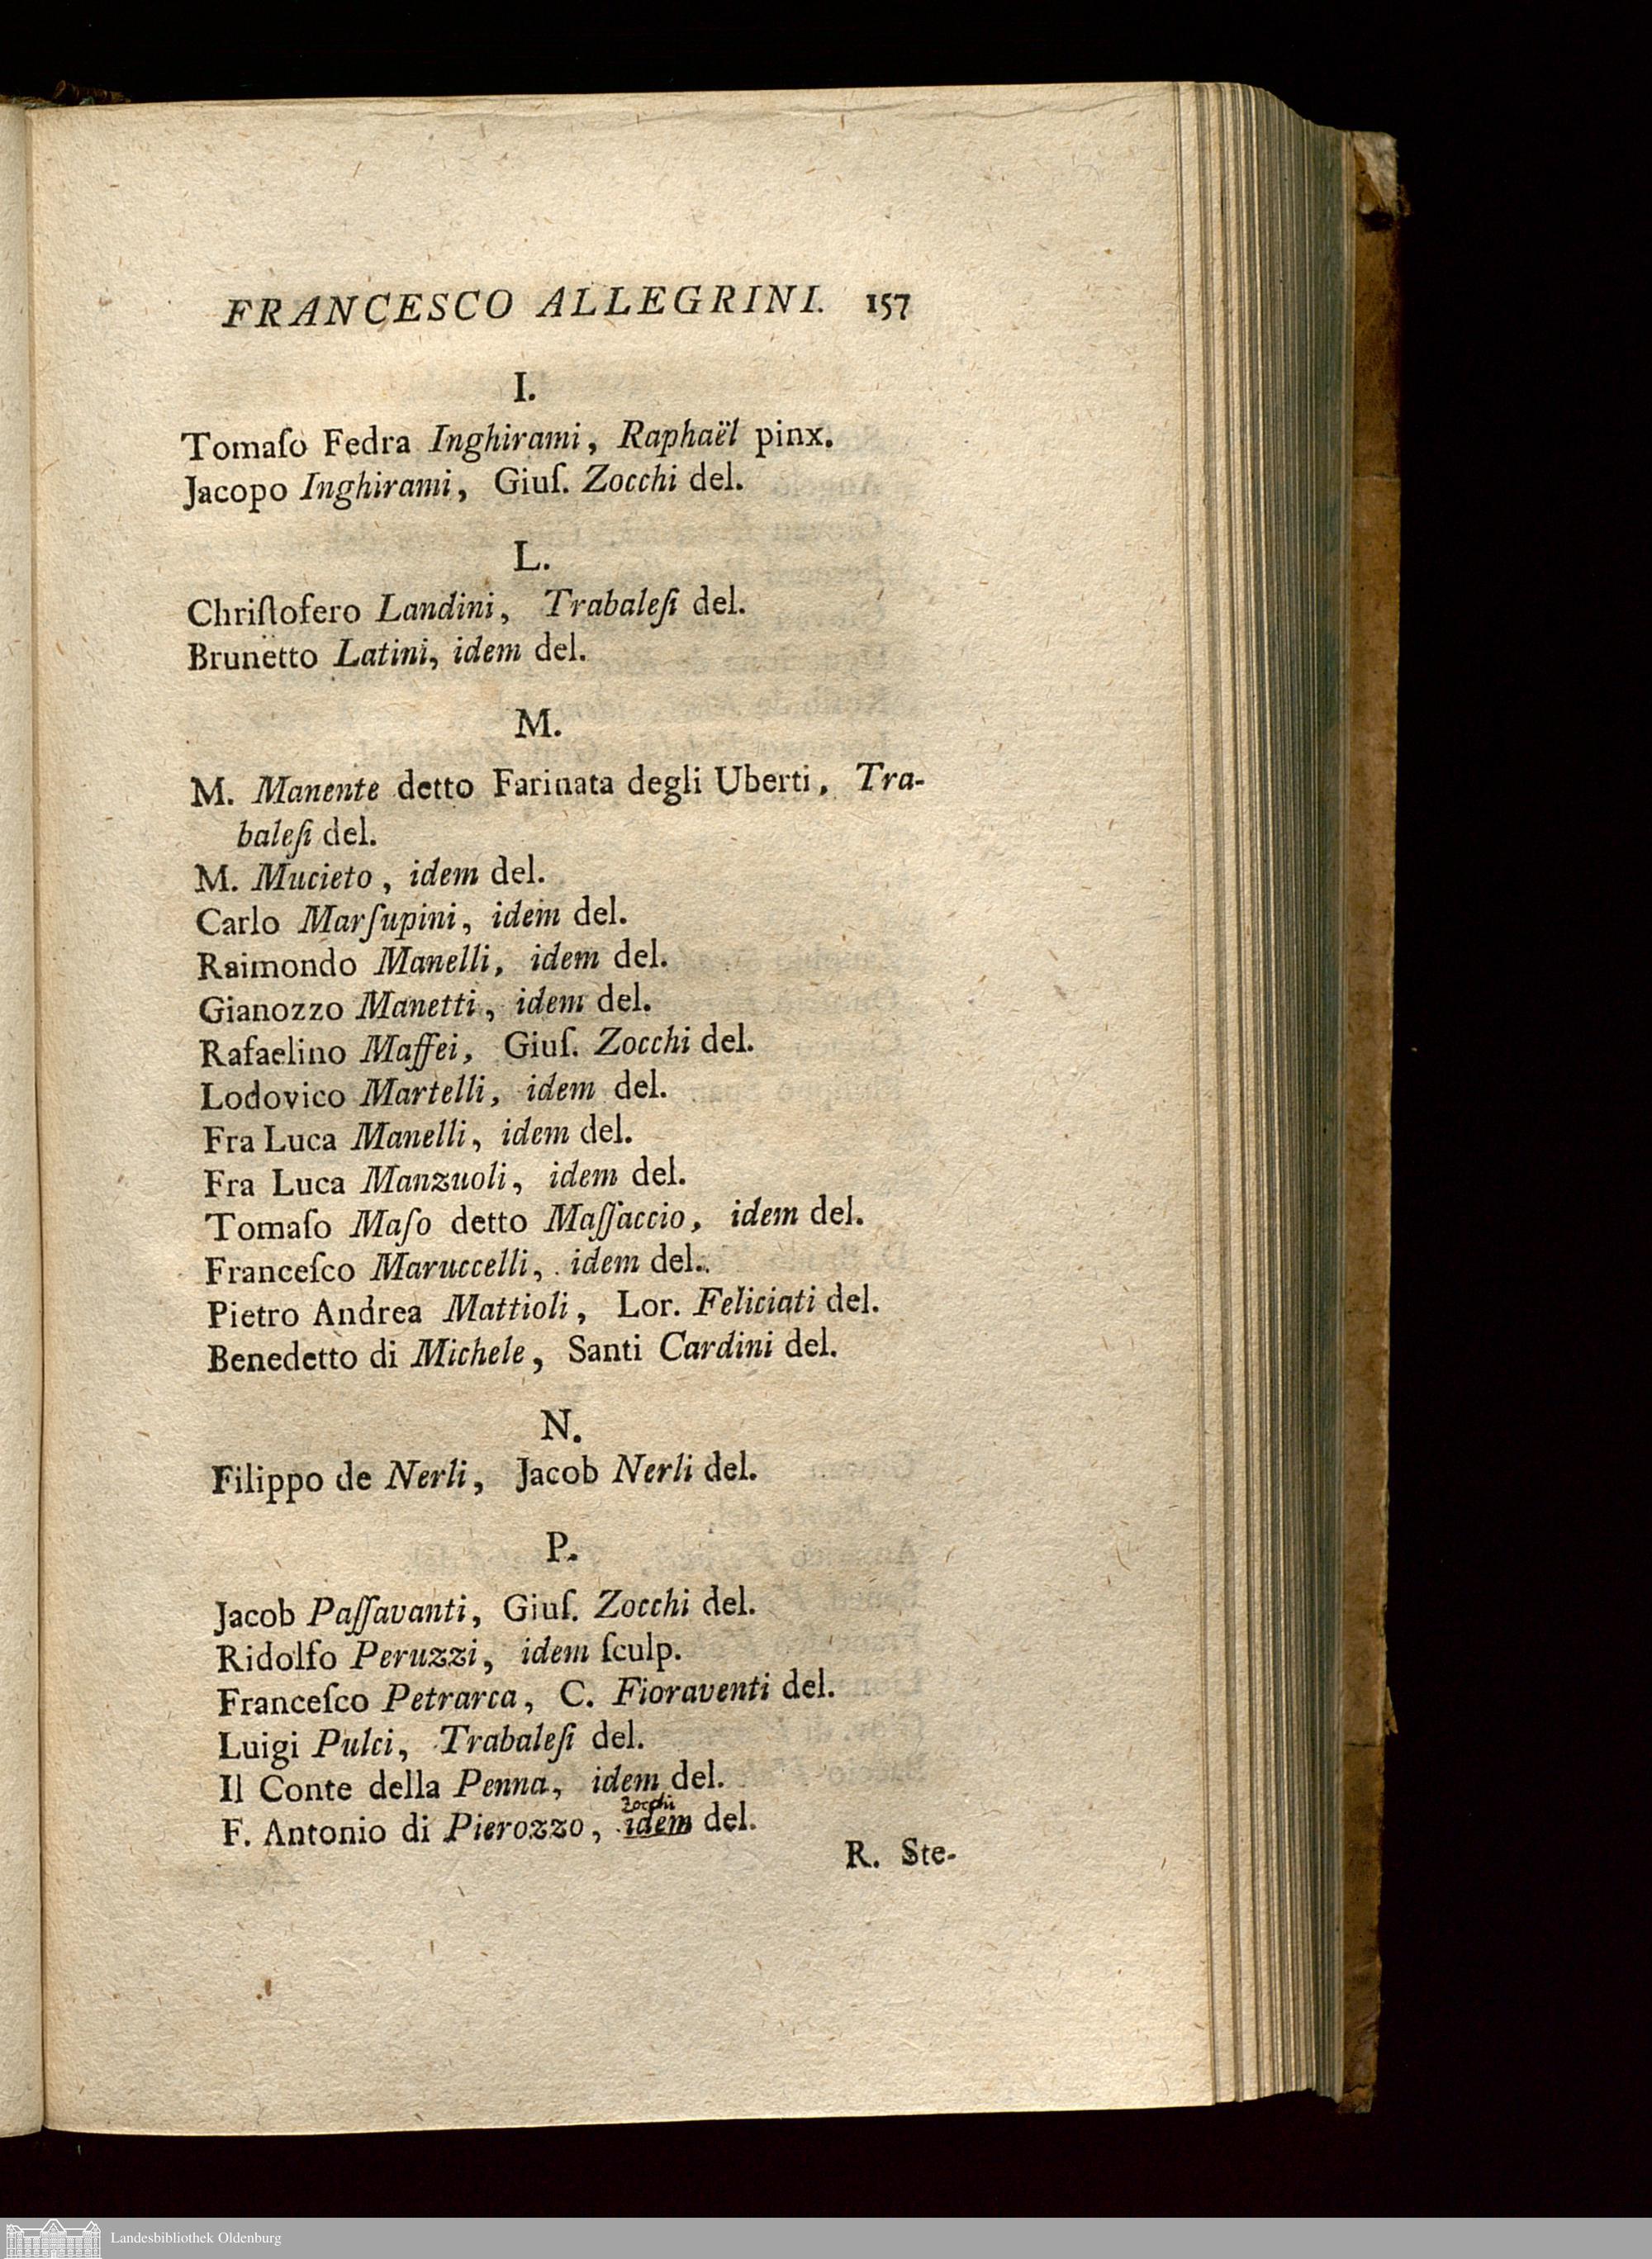 FRANCESCO ALLEGRINI. 157
I.
Tomaſo Fedra Inghirami, Raphaël pinx.
Jacopo Inghirami, Giuſ. Zocchi del.
L.
Chriſtofero Landini, Trabaleſi del.
Brunetto Latini, idem del.
M.
M. Manente detto Farinata degli Uberti, Tra-
baleſi del.
M. Mucieto, idem del.
Carlo Marſupini, idem del.
Raimondo Manelli, idem del.
Gianozzo Manetti, idem del.
Rafaelino Maffei, Giuſ. Zocchi del.
Lodovico Martelli, idem del.
Fra Luca Manelli, idem del.
Fra Luca Manzuoli, idem del.
Tomaſo Maſo detto Maſſaccio, idem del.
Franceſco Maruccelli, idem del.
Pietro Andrea Mattioli, Lor. Feliciati del.
Benedetto di Michele, Santi Cardini del.
N.
Filippo de Nerli, Jacob Nerli del.
P.
Jacob Paſſavanti, Giuſ. Zocchi del.
Ridolfo Peruzzi, idem ſculp.
Franceſco Petrarca, C. Fioraventi del.
Luigi Pulci, Trabaleſi del.
Il Conte della Penna, idem del.
Zocchi
F. Antonio di Pierozzo, idem del.
R. Ste-
Landesbibliothek Oldenburg